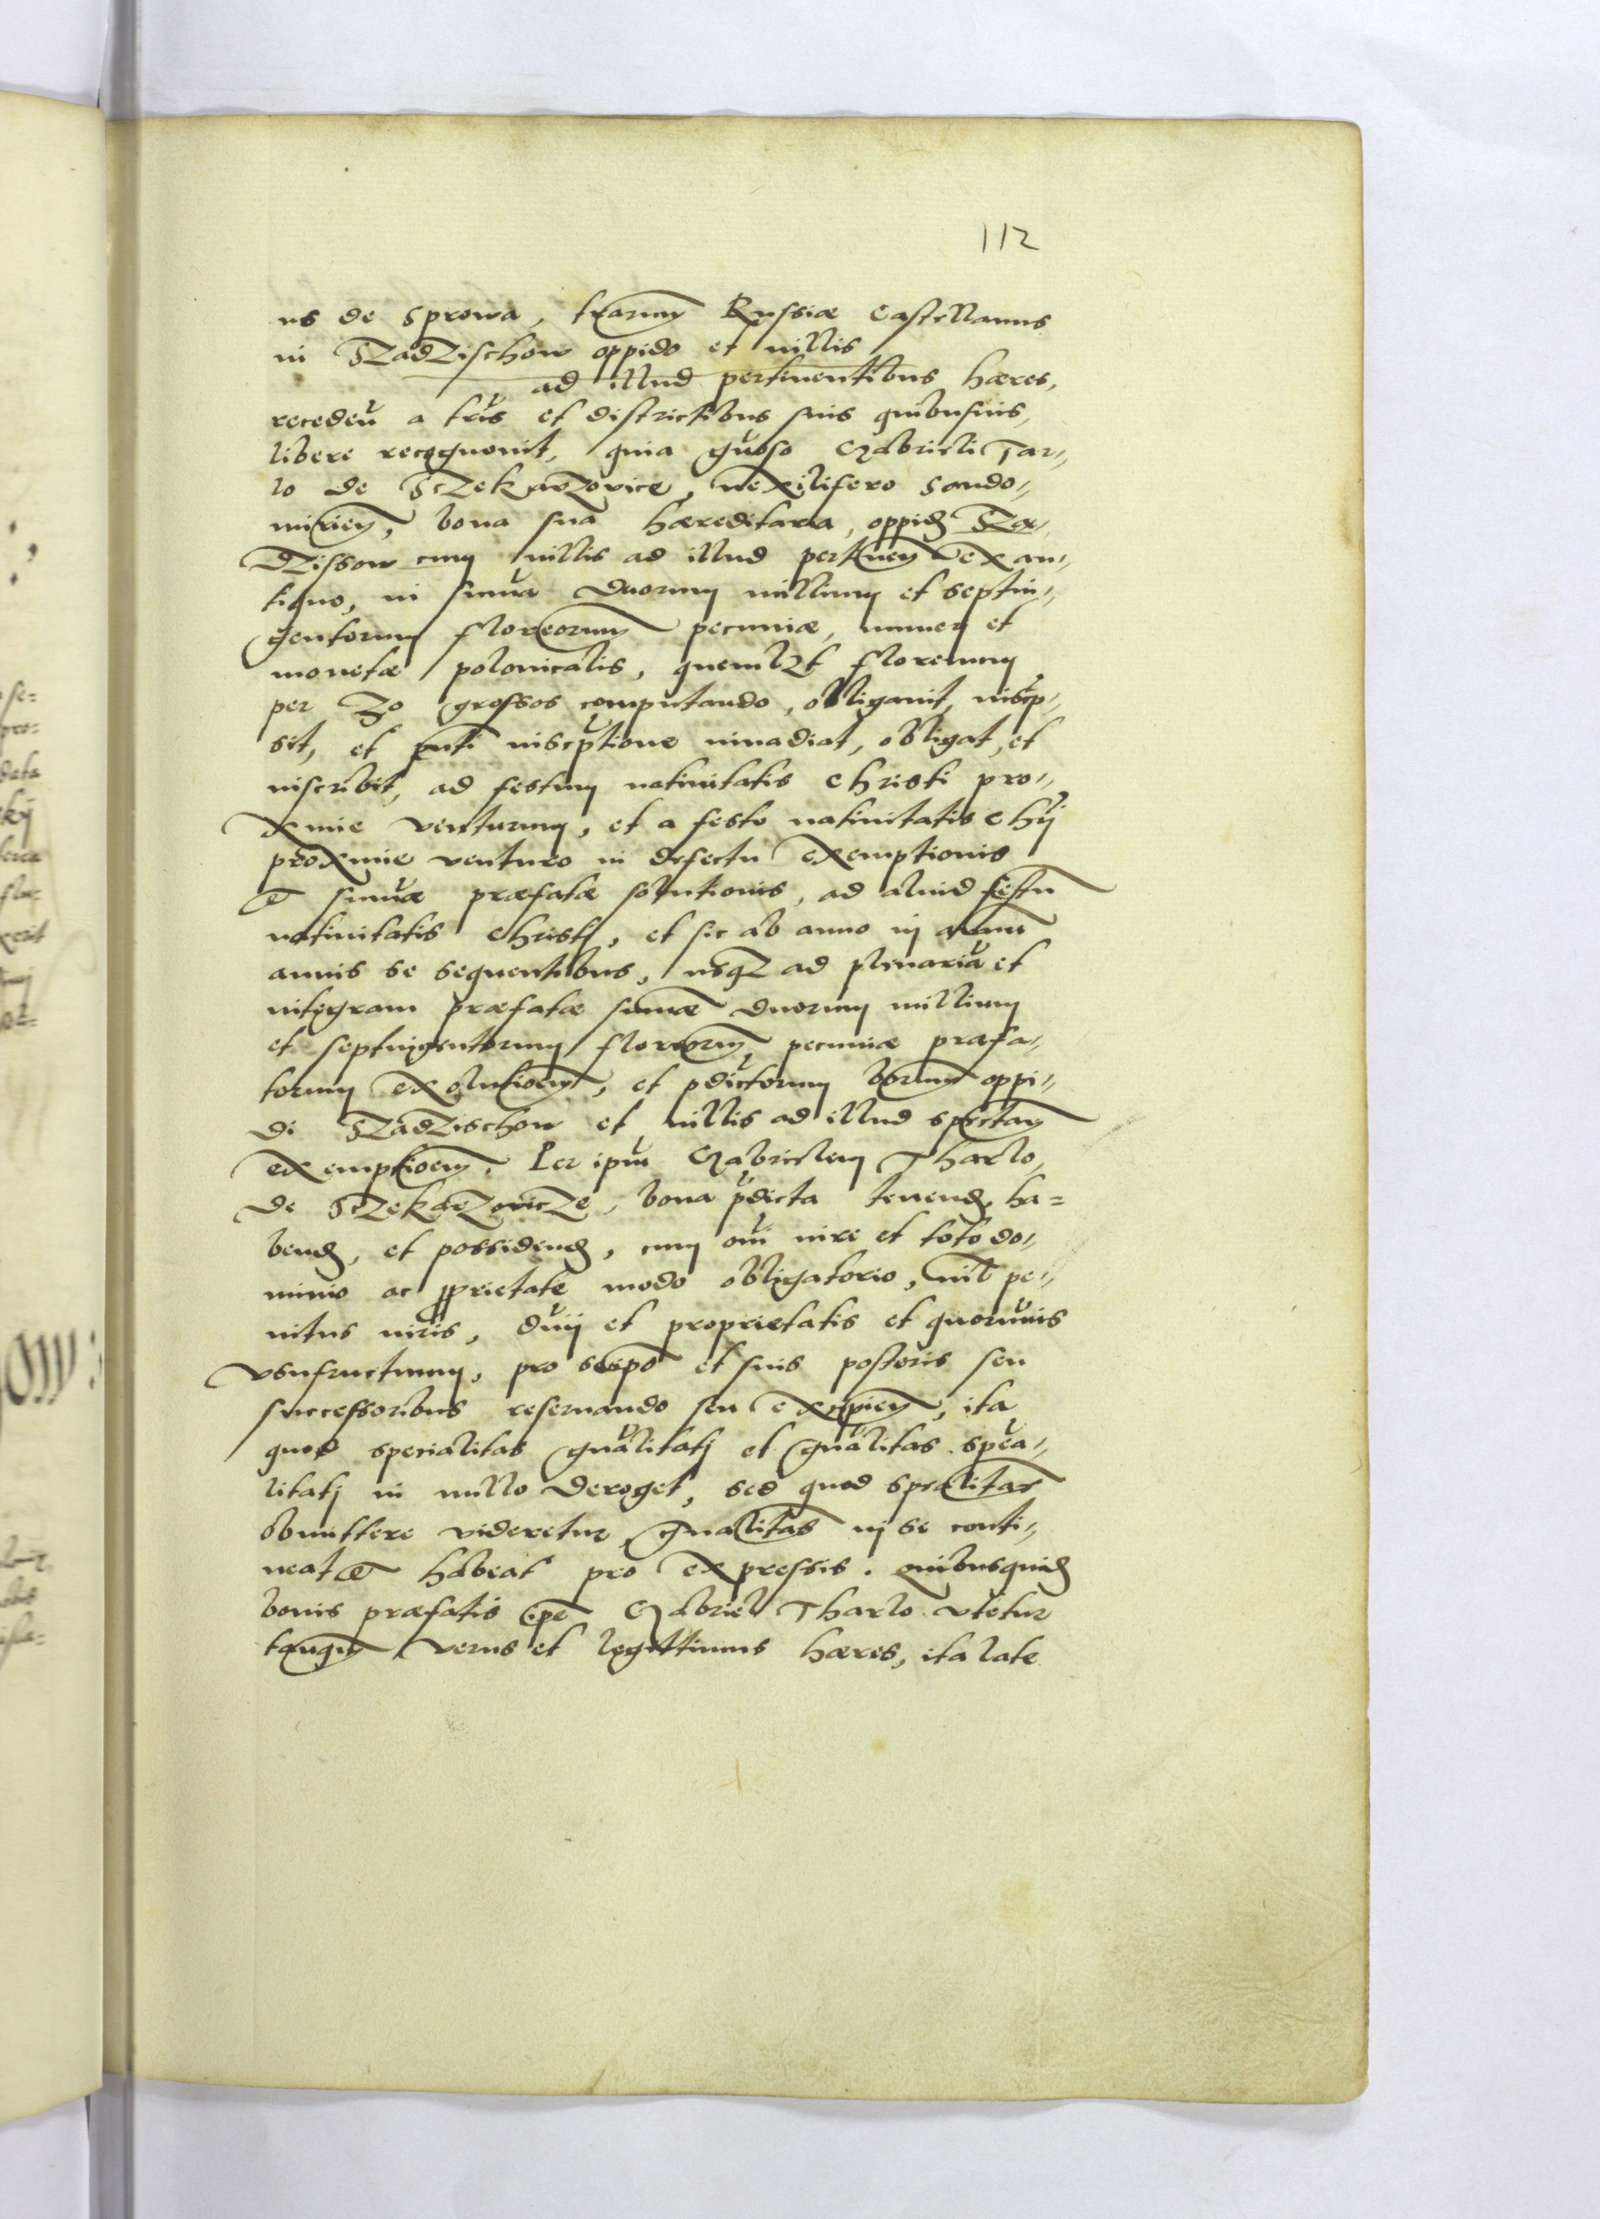 112
us de Sprowa, trarum Russiæ Castellanus
in SZadZischow oppido et villis
ad illud pertinentibus hæres,
recedeñ a tris et districtibus suis quibusuis,
libere recognouit, quia gnoso Gabrieli Tar„
lo de SczekarZovice, vexilifero Sando„
mirieñ, bona sua hæreditaria, oppid Sza„
dzissow cum villis ad illud pertineñ ex an„
tiquo, in suma duorum millium et septin„
gentorum florenorum pecuniæ, numeri et
monetæ polonicalis, quemlZt florenum
per 30 grossos computando, obligauit, inscrip„
sit, et pnti inscriptione inuadiat, obligat, et
inscribit, ad festum natiuitatis Christi pro„
xime venturum, et a festo natiuitatis Chri
proxime venturo in defectu exemptionis
et sumæ præfatæ solutionis, ad aliud festu
natiuitatis Christi, et sic ab anno in annu
annis se sequentibus, usqZ ad plenaria et
integram præfatæ sumæ duorum millium
et septingentorum florenorum pecuniæ præfa„
torum exolutioem, et pdictorum bonorum oppi„
di SZadZischow et villis ad illud spectañ
exemptioem. Per ipm Gabrielem Tharlo
de SczekarZovicZe, bona pdicta tenend, ha=
bend, et possidend, cum oi iure et toto do„
minio ac pprietate modo obligatorio, nil pe„
nitus iuris, dnij et proprietatis et quoruuis
vsufructuum, pro se ipso et suis posteris seu
successoribus reseruando seu excipieñ, ita
quod specialitas gnalitati et gnalitas specia„
litati in nullo deroget, sed quod spcalitas
obmittere videretur, gnalitas in se conti„
neat et habeat pro expressis. Quibusquid
bonis præfatis ipse Gabriel Tharlo vtetur
tanqm verus et legittimus hæres, ita late